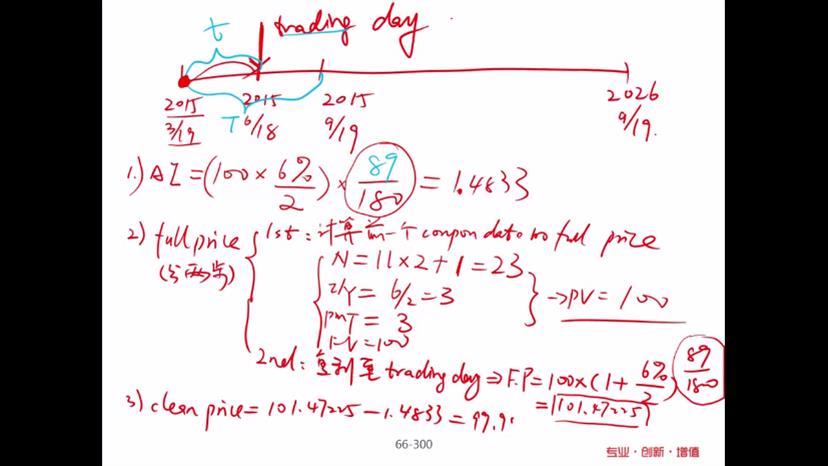 t
trading day
2015
3/19
2015
6/18
T
2015
9/19
2026
9/19.
1.) AI = (100 × 6%/2) × 89/180 = 1.4833
2) full price
(分两步)
1st: 计算前一个 coupon date 的 full price
N = 11×2+1 = 23
I/Y = 6/2 = 3
PMT = 3
FV = 100
→ PV = 100
2nd: 复利至 trading day ⇒ F.P = 100×(1+6%/2)^89/180
= 101.47225
3) clean price = 101.47225 − 1.4833 = 99.9
66-300
专业·创新·增值